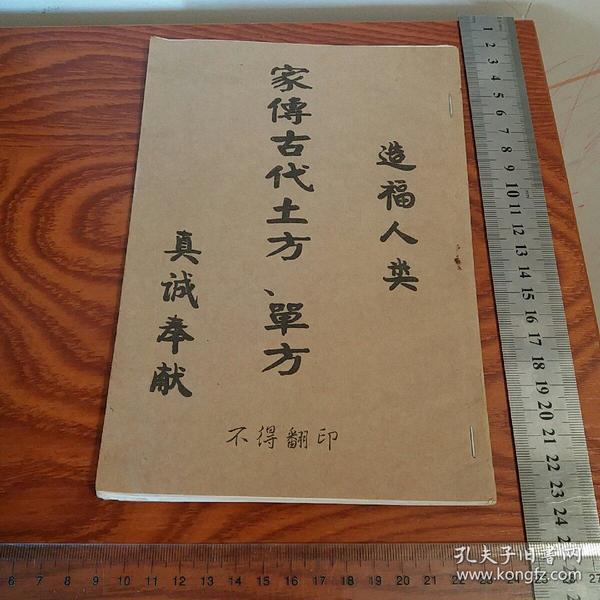 造福人类
家傳古代土方、單方
真诚奉献
不得翻印
1 2 3 4 5 6 7 8 9 10 11 12 13 14 15 16 17 18 19 20 21 22 23 24 25
6 7 8 9 10 11 12 13 14 15 16 17 18 19 20 21 22 23 24 25 26 27
孔夫子旧书网
www.kongfz.com